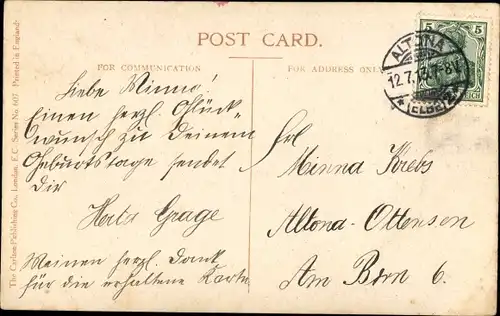 POST CARD.
FOR COMMUNICATION
FOR ADDRESS ONLY
The Carlton Publishing Co., London, E.C. Series No. 607. Printed in England
Liebe Minna!
Einen herzl. Glück-
wunsch zu Deinem
Geburtstage sendet
Dir
Herta Grage
Meinen herzl. Dank
für die erhaltene Karte
5 5
ALTONA
12.7. 7-8V
(ELBE)
Frl.
Minna Krebs
Altona-Ottensen
Am Born 6.